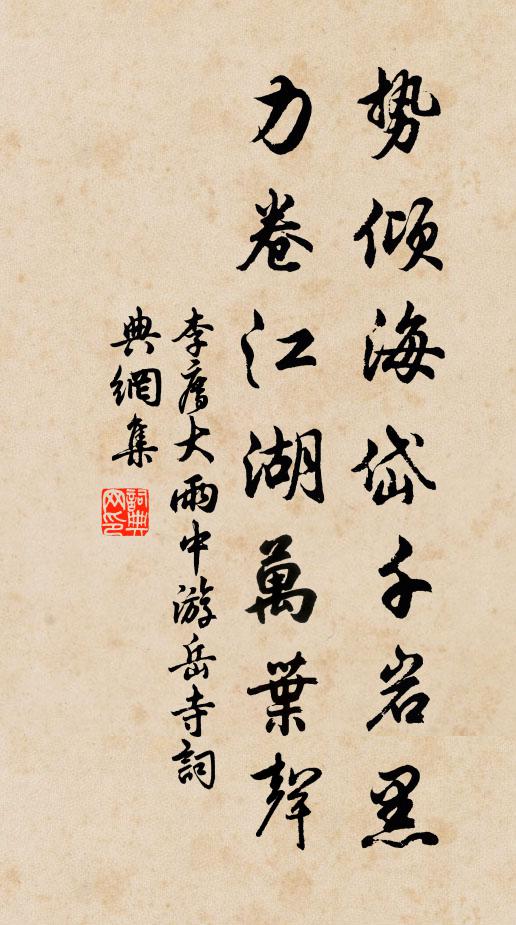 勢傾海岱千岩黑
力卷江湖萬葉聲
李廌大雨中游岳寺詞
典網集
詞典網印